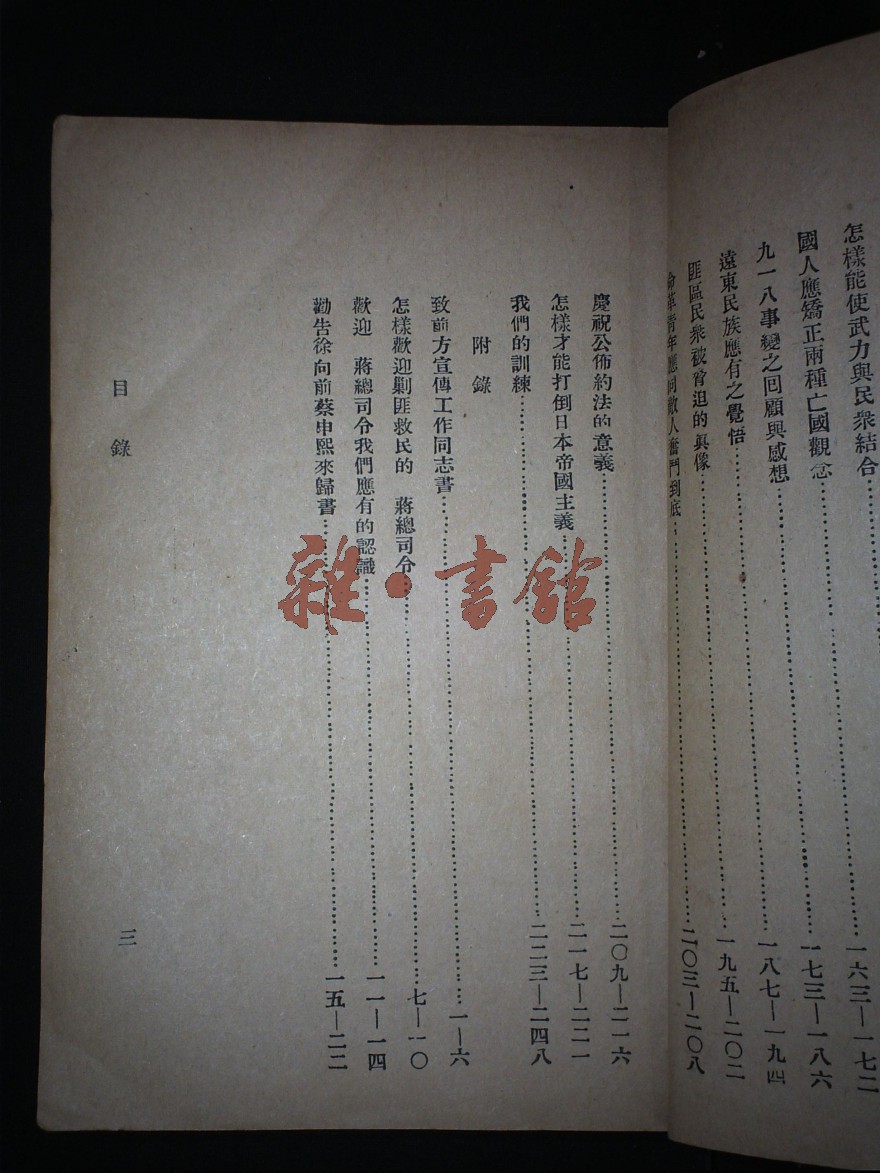 怎樣能使武力與民衆結合……一六三—一七二
國人應矯正兩種亡國觀念……一七三—一八六
九一八事變之回顧與感想……一八七—一九四
遠東民族應有之覺悟……一九五—二〇二
匪區民衆被脅迫的眞像……二〇三—二〇八
革青年應同敵人奮鬥到底……
慶祝公佈約法的意義……二〇九—二一六
怎樣才能打倒日本帝國主義……二一七—二二一
我們的訓練……二二三—二四八
附錄
致前方宣傳工作同志書……一—六
怎樣歡迎剿匪救民的 蔣總司令……七—一〇
歡迎 蔣總司令我們應有的認識……一一—一四
勸告徐向前蔡申熙來歸書……一五—二二
目錄
三
雜·書館